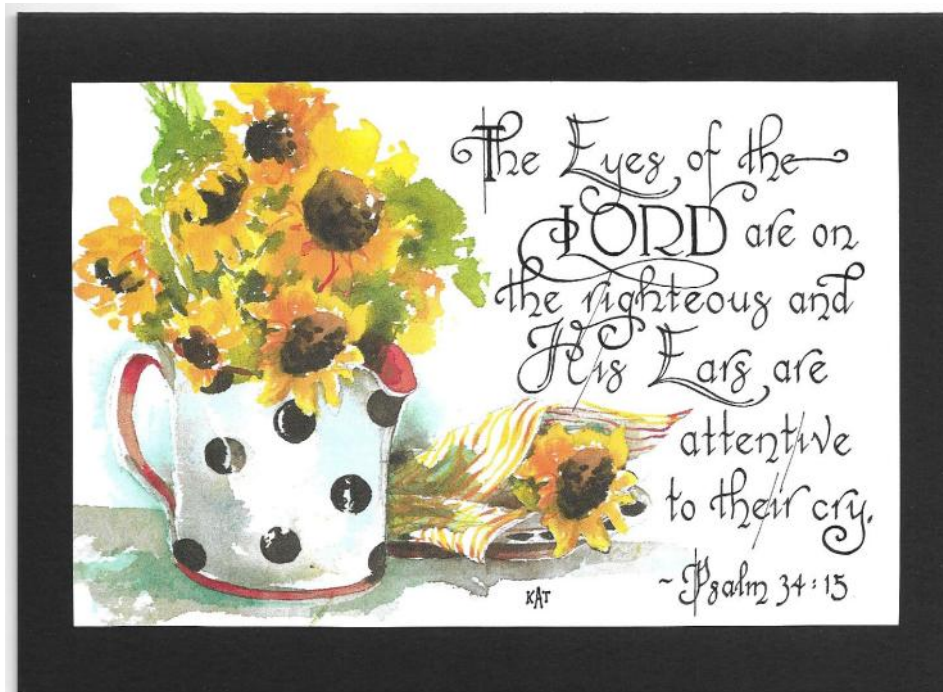 The Eyes of the
LORD are on
the righteous and
His Ears are
attentive
to their cry.
~ Psalm 34:15
KAT